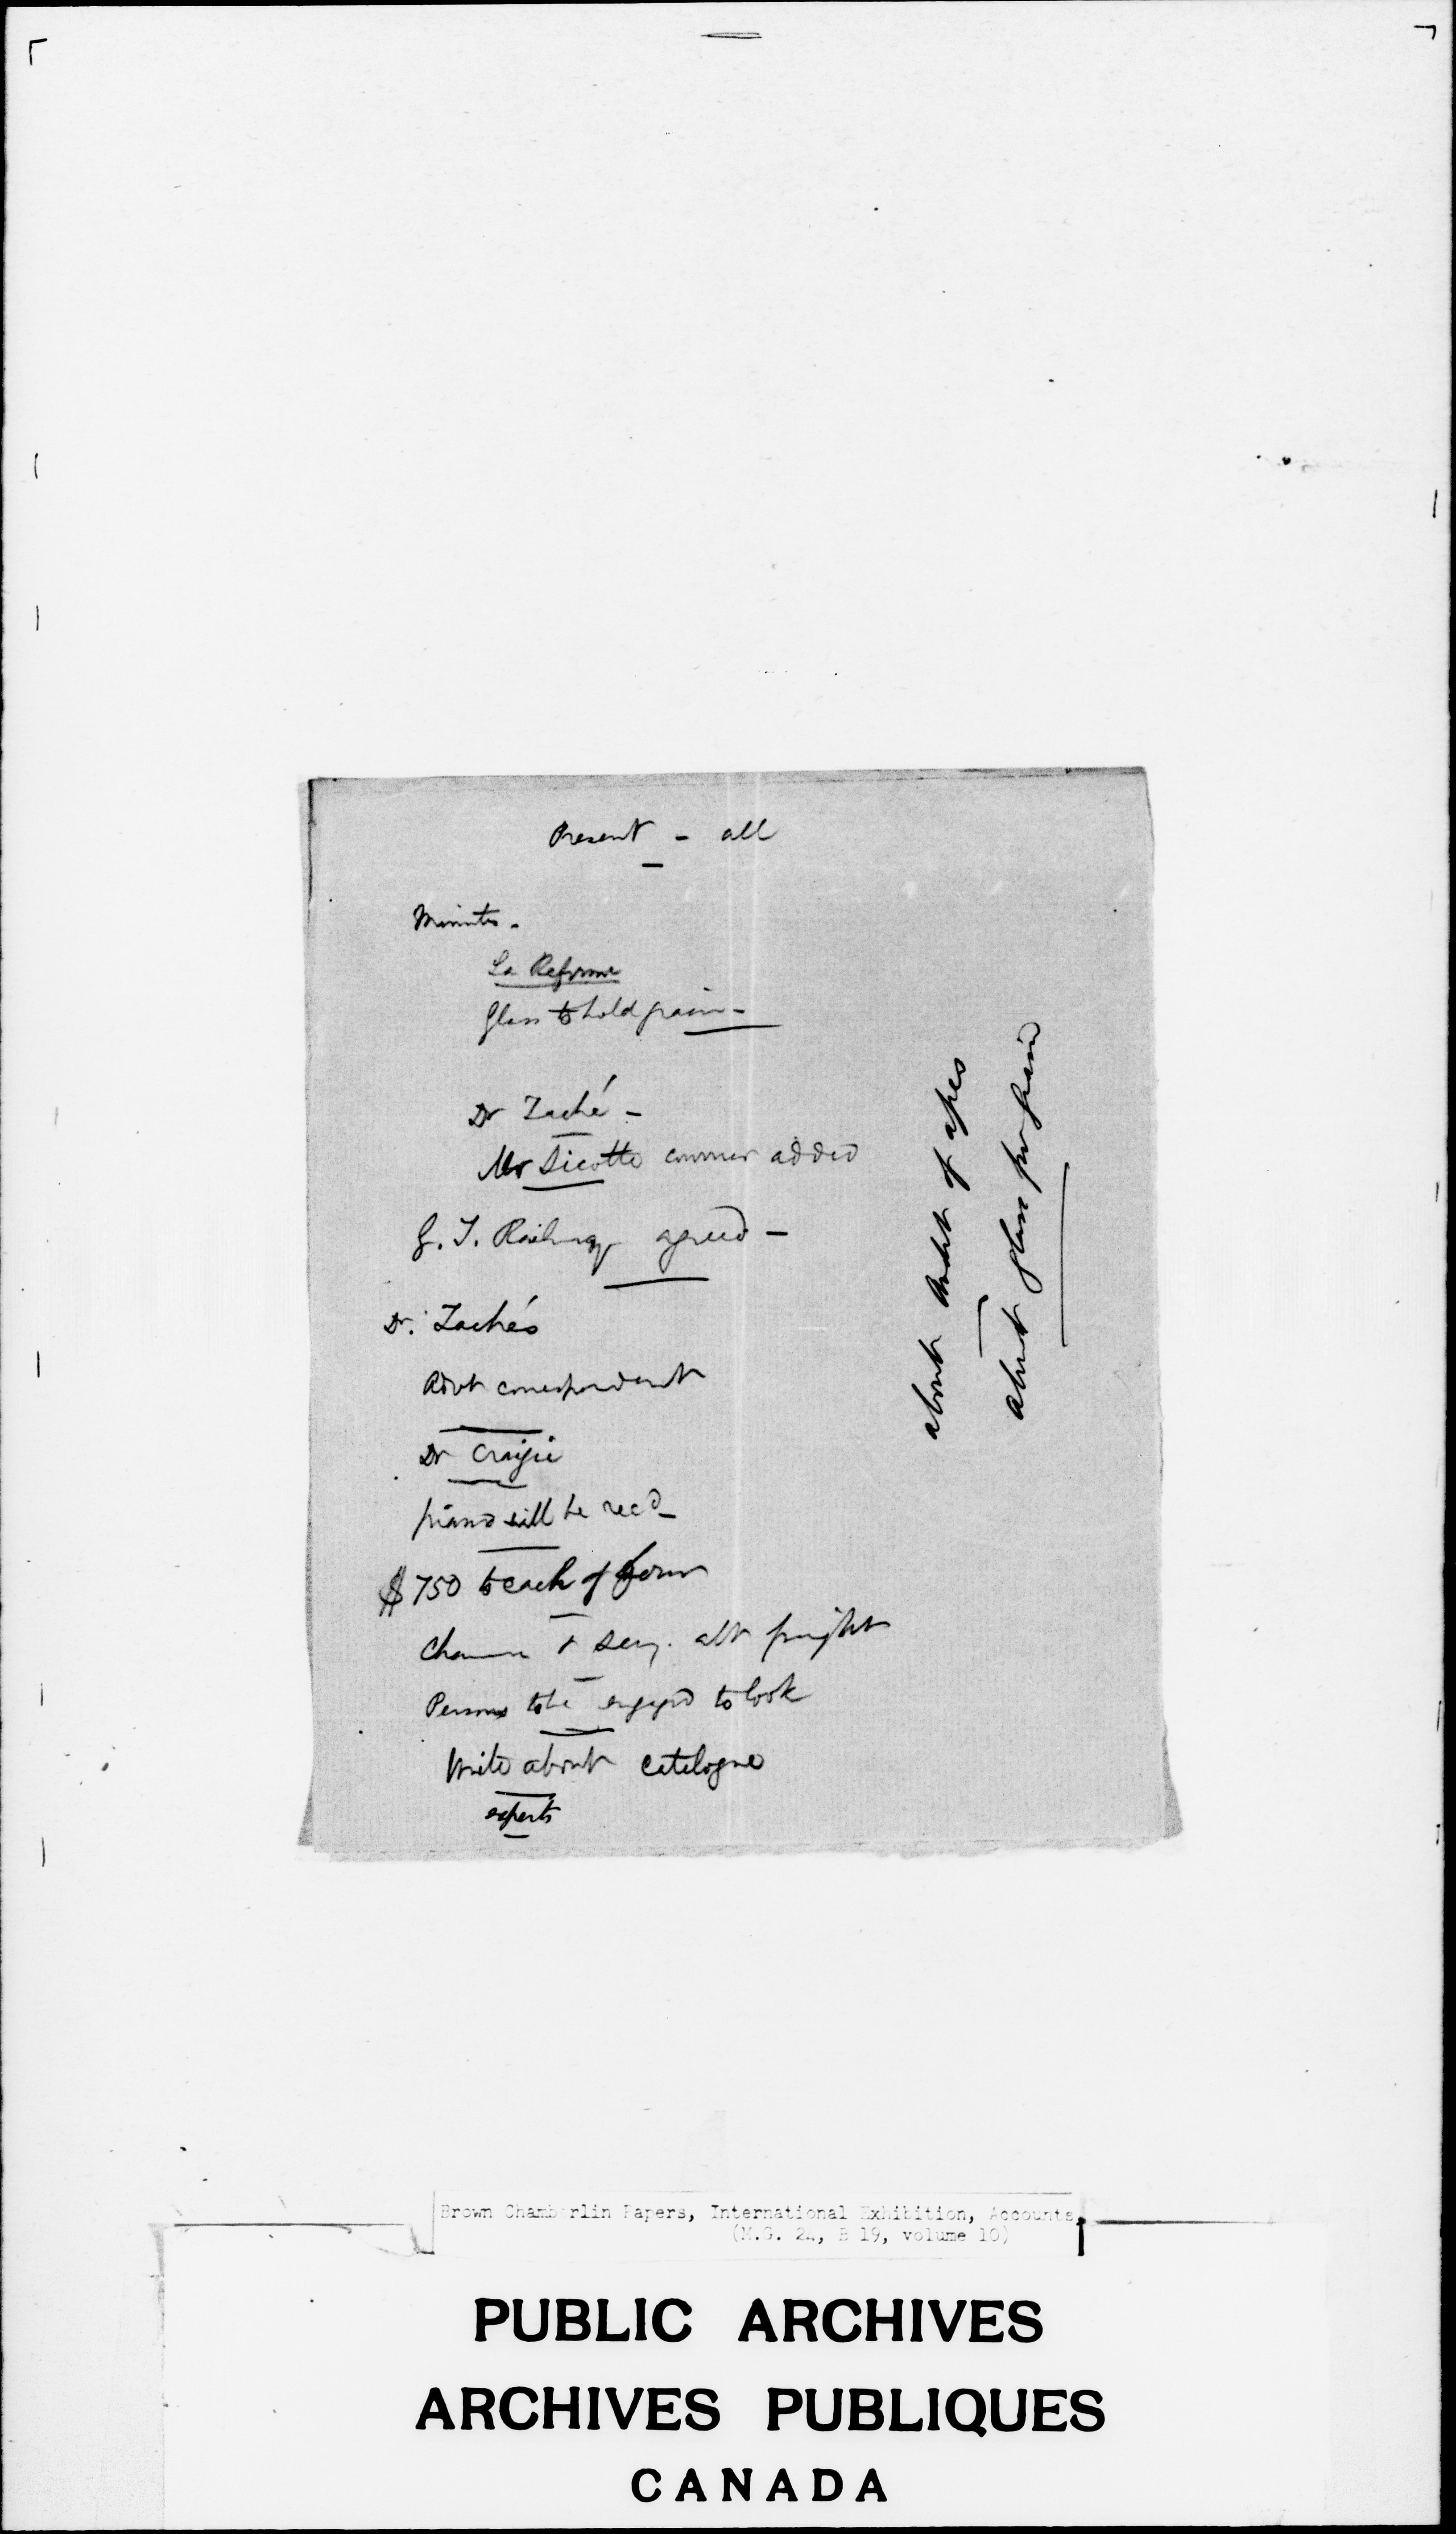 Present - all
Minutes -
La Reforme
Glass to hold grain -
Dr Taché -
Mr Sicotte commr added
G. T. Railway agreed -
Dr. Taché's
Advt correspondent
Dr Craigie
piano will be recd -
$750 to each of four
& Secy. abt freight
Persons to be engaged to look
Write about catalogue
experts
about audit of
about glass for grain
Brown Chamberlin Papers, International Exhibition, Accounts,
(M.G. 24, B 19, volume 10)
PUBLIC ARCHIVES
ARCHIVES PUBLIQUES
CANADA